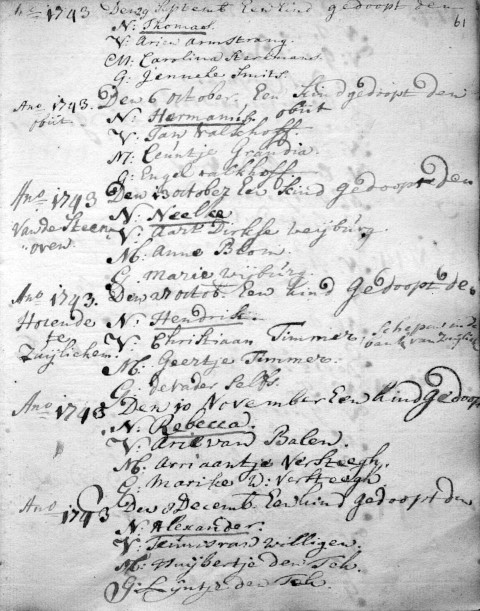 Ano 1743 Den 29 Septemb Een kind gedoopt den
61
N: Thomas.
V: Arien armstrang.
M: Carolina
G: Jenneke Smits.
Ano 1743. Den 6 october. Een kind gedoopt den
obiit. N: Hermanus obiit
V: Jan valkhoff
M: Leuntje Grandia.
G: Engel valkhoff
Ano 1743 Den 13 october Een kind gedoopt den
Van de Steen N: Neelke
oven. V: Aart Dirkse weijburg.
M: Anne Blom.
G: Marie wijburg.
Ano 1743. Den 27 octob. Een kind Gedoopt de
Hoeende N: Hendrik.
te V: Christiaan Timmer, Schepen in de
bank van Zuijlic
Zuijlichem. M: Geertje Timmer.
G: de vader selfs.
Ano 1743 Den 10 November Een kind gedoopt
N: Rebecca.
V: Arie van Balen.
M: Arriaantje Versteegh.
G: Marike V: Versteegh
Ano 1743 Den 8 Decemb. Een kind gedoopt den
N: Alexander.
V: Teunis van willigen.
M: Huijbertje den Tek.
G: Lijntje den Tek.